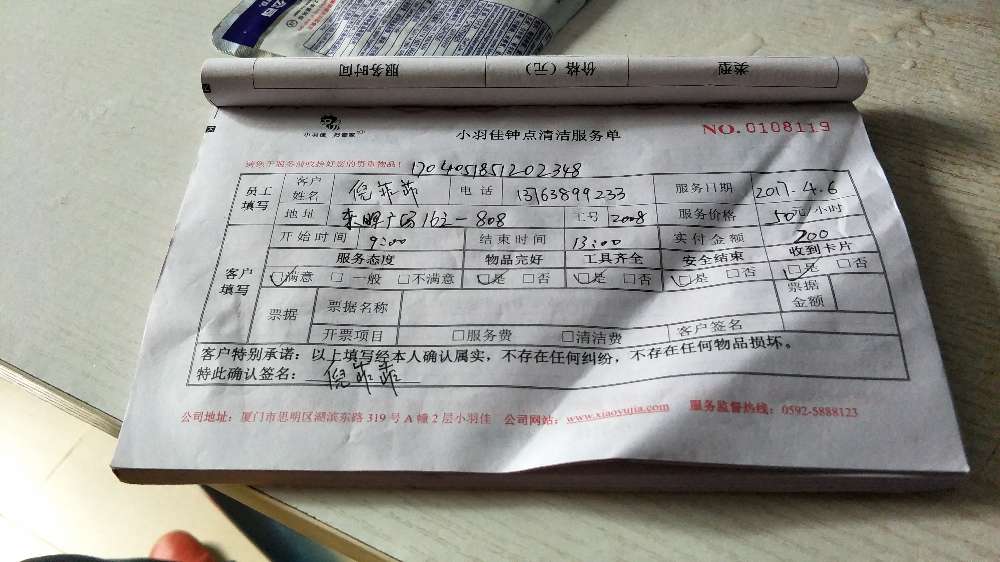 服务时间 价格（元） 类型
小羽佳 好管家
小羽佳钟点清洁服务单
NO. 0108119
请您于服务前收拾好您的贵重物品！
1204051851202348
员工填写 客户姓名 电话 13763899233 服务日期 2017.4.6
地址 工号 2008 服务价格 50元/小时
客户填写 开始时间 9:00 结束时间 13:00 实付金额 200
服务态度 物品完好 工具齐全 安全结束 收到卡片
☑满意 □一般 □不满意 ☑是 □否 ☑是 □否 ☑是 □否 ☑是 □否
票据 票据名称 票据金额
开票项目 □服务费 □清洁费 客户签名
客户特别承诺：以上填写经本人确认属实，不存在任何纠纷，不存在任何物品损坏。
特此确认签名：
公司地址：厦门市思明区湖滨东路 319 号 A 幢 2 层小羽佳 公司网站：www.xiaoyujia.com 服务监督热线：0592-5888123